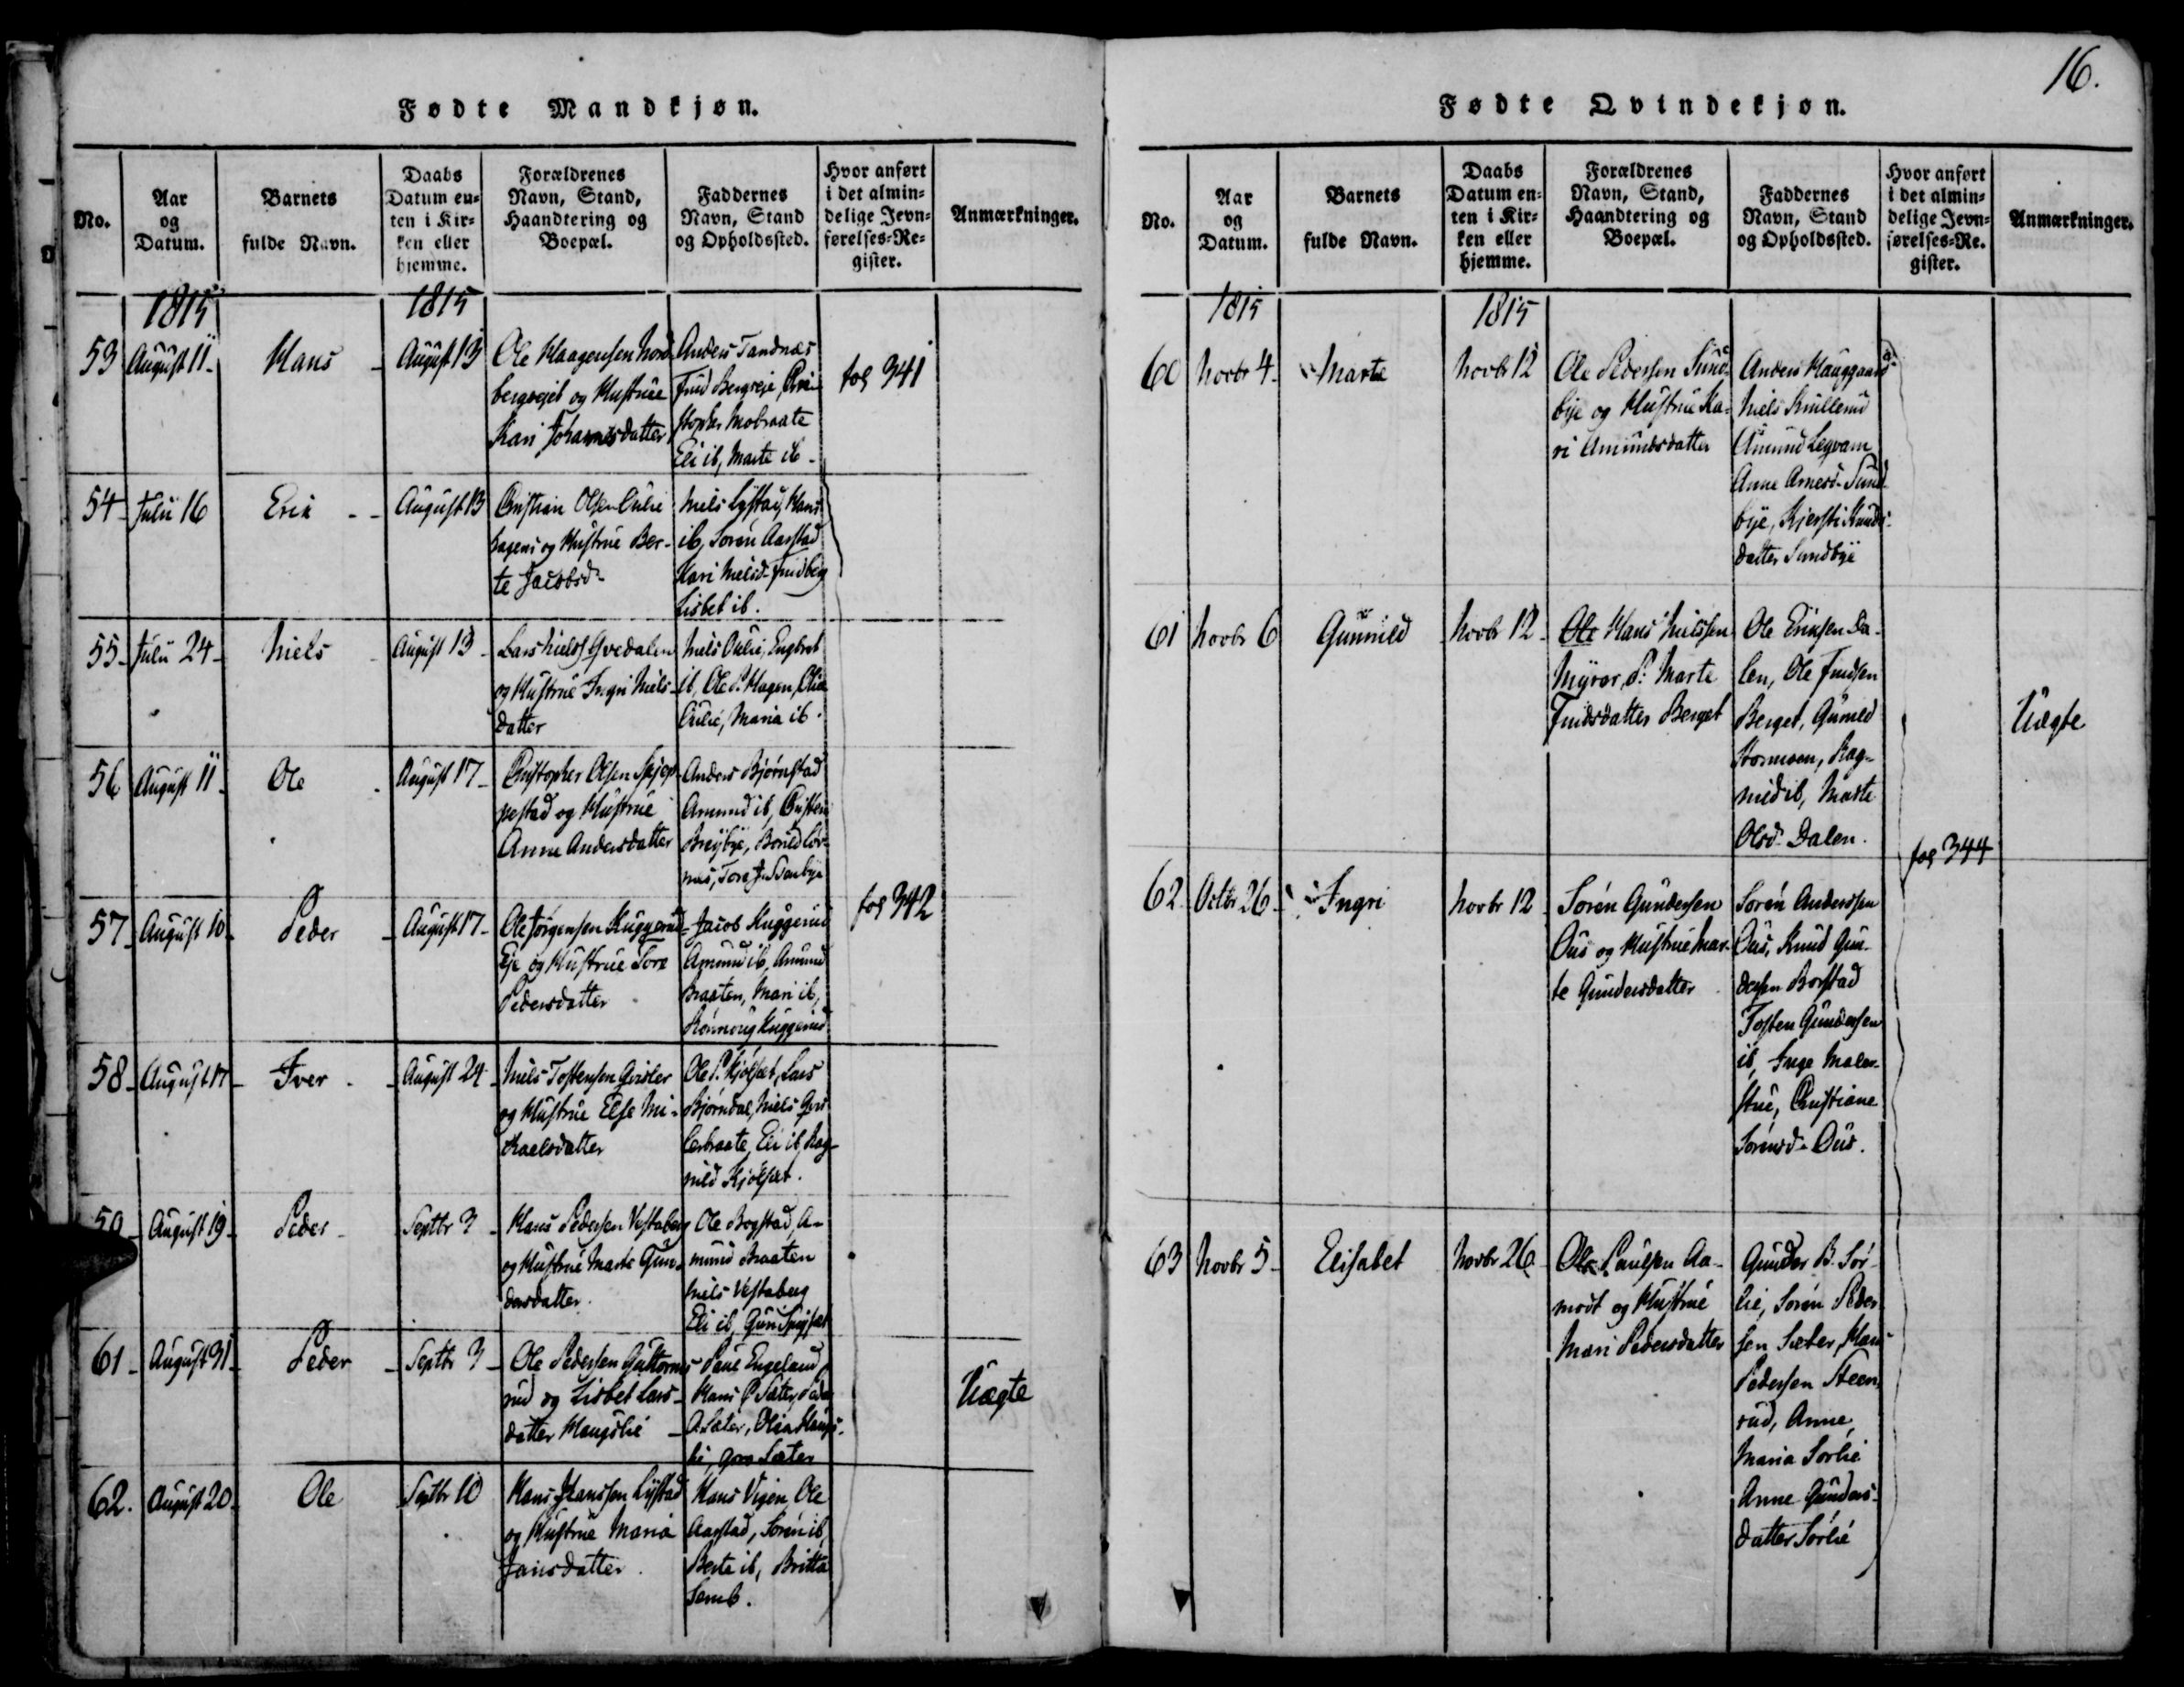 Fødte Mandkjøn.
No.
Aar
og
Datum.
Barnets
fulde Navn.
Daabs
Datum en-
ten i Kir-
ken eller
hjemme.
Forældrenes
Navn, Stand,
Haandtering og
Boepæl.
Faddernes
Navn, Stand
og Opholdssted.
Hvor anført
i det almin-
delige Jevn-
førelses-Re-
gister.
Anmærkninger.
1815
1815
53
August 11
Hans
August 13
Ole Haagensen Nord
bergejet og Hustrue
Kari Johannesdatter
Anders Tandnæs
Eli ib, Marte ib
fol 341
54
Julii 16
Eric
August 13
Christian Olsen
hagens og Hustrue Ber-
te Jacobsd
Niels Lystad, Hans
ib, Soren Aarstad
Kari Nielsd
Lisbet ib.
55
Julii 24
Niels
August 13
Lars Niels
og Hustrue Ingri Niels-
datter
Niels Engbret
ib, Ole P. Hagen, Olia
Maria ib.
56
August 11
Ole
August 17
Christopher Olsen Skjep-
pestad og Hustrue
Anne Andersdatter
Anders Bjørnstad
Amund ib, Christen
57
August 10
Peder
August 17
Ole Jørgensen Kuggerud
Eje og Hustrue Tore
Pedersdatter
Jacob Kuggerud
Amund ib, Amund
Braaten, Mari ib,
Rønnoug Kuggerud
fol 342
58
August 17
Iver
August 24
Niels Tostensen Grisler
og Hustrue Else Mi-
kaelsdatter
Ole P. Kjølset, Lars
Bjørndal, Niels Gris
lerbraate, Eli ib, Rag-
nild Kjølset.
59
August 19
Peder
Septbr 3
Hans Pedersen Vestaberg
og Hustrue Marte Gun-
dersdatter.
Ole Bogstad, A-
mund Braaten
Niels Vestaberg
Eli ib,
61
August 31
Peder
Septbr 3
Ole Pedersen Guttorms
rud og Lisbet Lars-
datter Haugslie
Paul Engelund
Hans P Sæter, Peder
A. Sæter, Olia Haugs-
lie, Goro Sæter
Uægte
62.
August 20
Ole
Septbr 10
Hans Hanssen Lystad
og Hustrue Maria
Jansdatter.
Hans Vigen, Ole
Aarstad, Soren ib,
Berte ib, Britta
Semb.
16.
Fødte Qvindekjøn.
No.
Aar
og
Datum.
Barnets
fulde Navn.
Daabs
Datum en-
ten i Kir-
ken eller
hjemme.
Forældrenes
Navn, Stand,
Haandtering og
Boepæl.
Faddernes
Navn, Stand
og Opholdssted.
Hvor anført
i det almin-
delige Jevn-
førelses-Re.
gister.
Anmærkninger.
1815
1815
60
Novbr 4
Marte
Novbr 12
Ole Pedersen Sund-
bye og Hustrue Ka-
ri Amundsdatter
Anders Hauggaard
Niels Knillerud
Amund Legvam
Anne Arnesd. Sund
bye, Kjersti Knuds-
datter Sundbye
61
Novbr 6
Gunnild
Novbr 12
Ole Hans Nielssen
Myrer, P. Marte
Findsdatter Berget
Ole Eriksen Da-
len, Ole Findsen
Berget, Gunild
Stormoen, Rag-
nild ib, Marte
Olsd. Dalen.
Uægte
fol 344
62.
Octbr 26
Ingri
Novbr 12
Sørén Gundersen
Ous og Hustrue Mar-
te Gundersdatter
Sørén Anderssen
Ous, Knud Gun-
dersen Borstad
Tosten Gundersen
ib, Inge Maler-
stue, Christiane
Sørensd. Ous.
63
Novbr 5
Elisabet
Novbr 26
Ole Paulsen Aa-
modt og Hustrue
Mari Pedersdatter
Gunder B. Sør-
lie, Soren Peder
sen Sæter, Hans
Pedersen Steen
rud, Anne
Maria Sorlie
Anne Gunders-
datter Sørlie